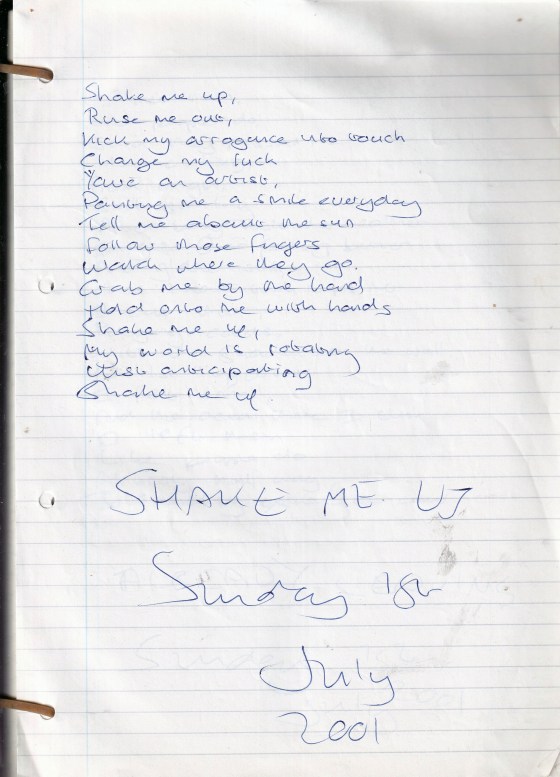 Shake me up,
Ruse me out,
Kick my arrogance into touch
Change my luck
You're an artist,
Painting me a smile everyday
Tell me about the sun
Follow those fingers
Watch where they go.
Grab me by the hand
Hold onto me with hands
Shake me up,
My world is rotating
anticipating
Shake me up
SHAKE ME UP
Sunday 1st
July
2001